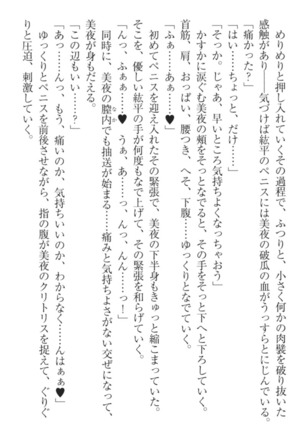 めりめりと押し入れていくその過程で、ふつりと、小さく何かの肉襞を破り抜いた
感触があり――気づけば紘平のペニスには美夜の破瓜の血がうっすらとにじんでいる。
「痛かった？」
「はい……ちょっと、だけ……」
「そっか。じゃあ、早いところ気持ちよくなっちゃおう」
かすかに涙ぐむ美夜の頬をそっとなでると、その手をそっと下へと下ろしていく。
首筋、肩、おっぱい、腰つき、へそ、下腹――ゆっくりとなでていく。
「ふぁ……あぁ…♥」
初めてペニスを迎え入れたその緊張で、美夜の下半身もきゅっと縮こまっていた。
そこを、優しい紘平の手が何度もなで上げて、その緊張を和らげていく。
「んっ、ふぁぁ…♥　うぁ、あ……っ、んっ、んん……っ！」
同時に、美夜の膣内でも抽送が始まる――痛みと気持ちよさがない交ぜになって、
美夜が身もだえる。
「この辺もいい……？」
「あっ……んっ、もう、痛いのか、気持ちいいのか、わからなく……んはぁぁ♥」
ゆっくりとペニスを前後させながら、指の腹が美夜のクリトリスを捉えて、ぐりぐ
りと圧迫、刺激していく。